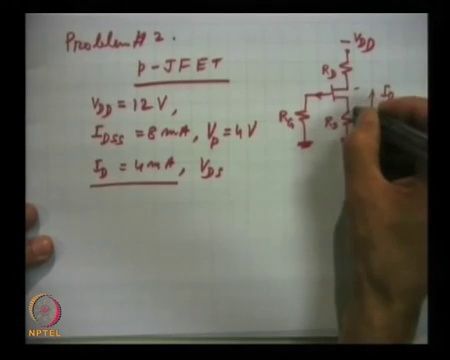 Problem # 2.
p-JFET
V_DD = 12V,
I_DSS = 8mA, V_p = 4V
I_D = 4mA, V_DS
-V_DD
R_D
I_D
R_G
R_S
NPTEL